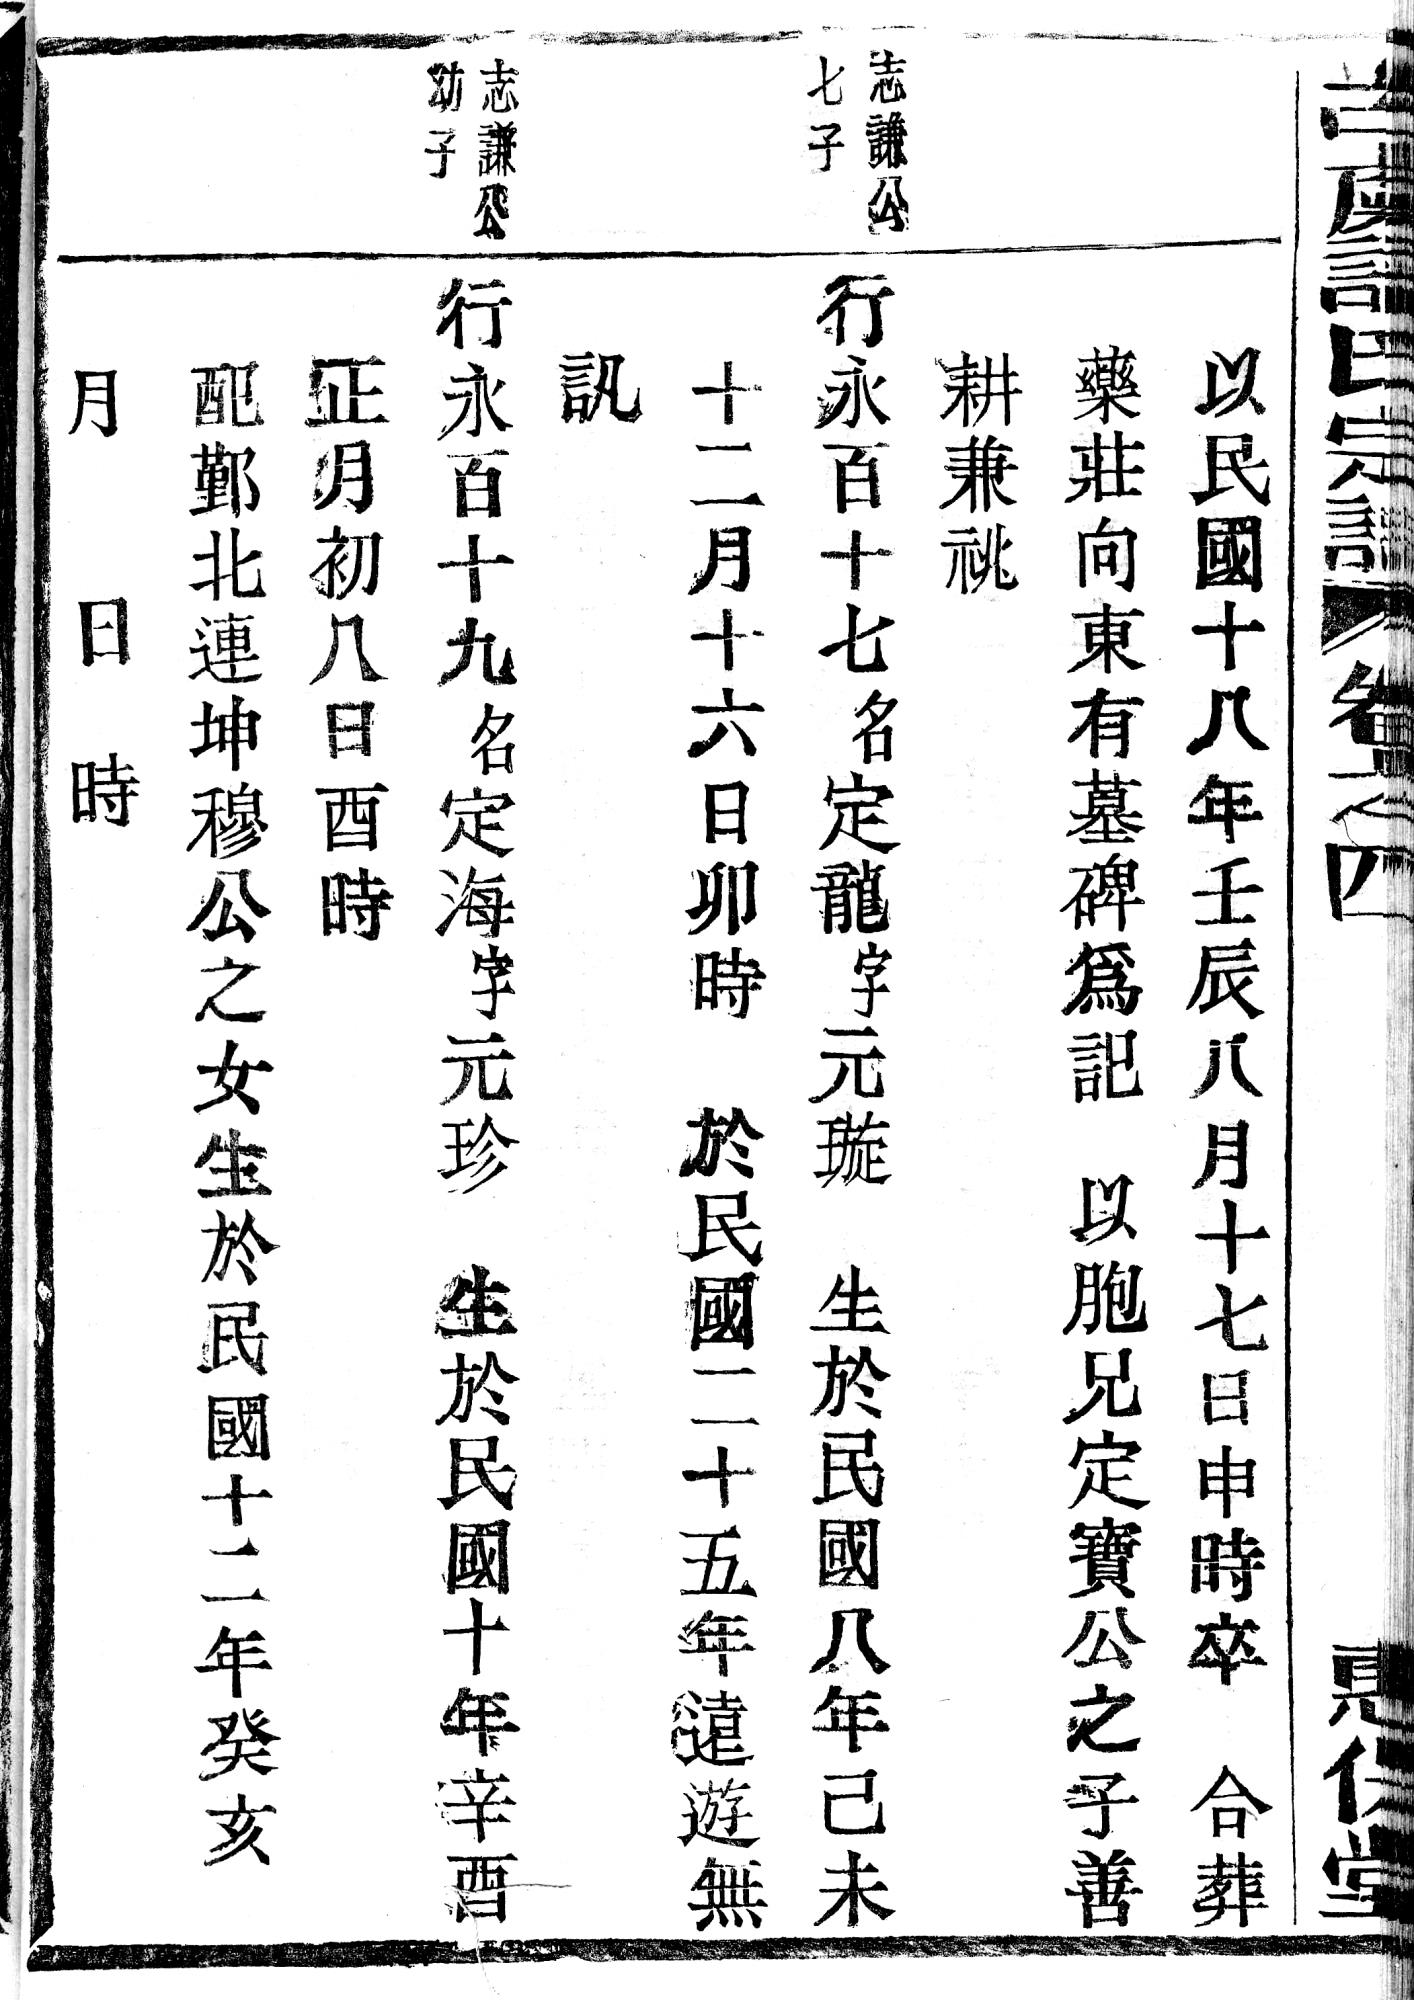 古虞謝氏宗譜 卷之四
以民國十八年壬辰八月十七日申時卒 合葬
藥莊向東有墓碑爲記 以胞兄定寶公之子善
耕兼祧
志謙公
七子
行永百十七名定龍字元璇 生於民國八年己未
十二月十六日卯時 於民國二十五年遠遊無
訊
志謙公
幼子
行永百十九名定海字元珍 生於民國十年辛酉
正月初八日酉時
配鄞北連坤穆公之女生於民國十二年癸亥
月 日 時